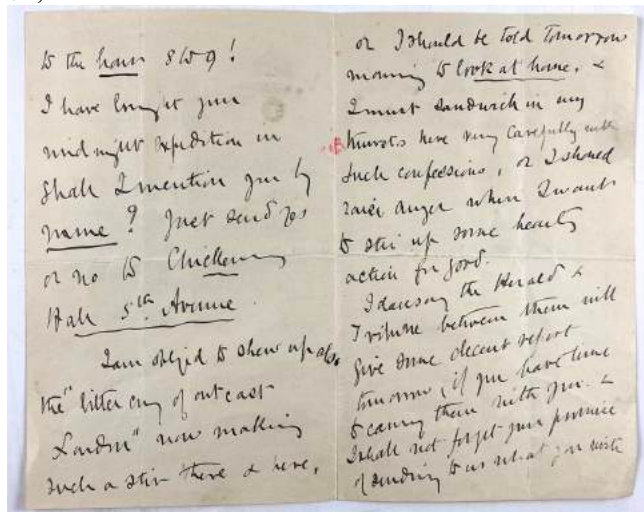 to the hour 8 to 9!
I have brought your
midnight expedition in
Shall I mention you by
name? Just send yes
or no to Chickering
Hall 5th Avenue.
I am obliged to shew up also
the "bitter cry of outcast
London" now making
such a stir there & here,
or I should be told tomorrow
morning to look at home, &
I must sandwich in my
thrusts here very carefully with
such confessions, or I should
raise anger when I want
to stir up some hearty
action for good.
I daresay the Herald &
Tribune between them will
give some decent report
tomorrow, if you have time
to carry them with you. &
I shall not forget your promise
of sending to us what you write